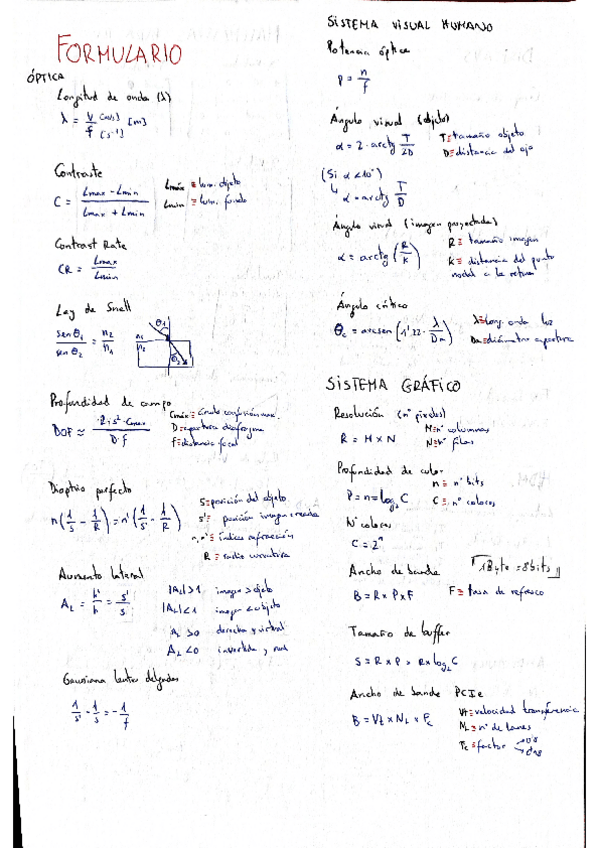 FORMULARIO
ÓPTICA
Longitud de onda (λ)
λ = v [m/s] / f [s⁻¹] [m]
Contraste
C = (Lmax - Lmin) / (Lmax + Lmin)
Lmáx ≡ lum. objeto
Lmin ≡ lum. fondo
Contrast Rate
CR = Lmax / Lmin
Ley de Snell
sen θ₁ / sen θ₂ = n₂ / n₁
n₁ n₂ θ₁ θ₂
Profundidad de campo
DOF ≈ 2·s²·Cmax / D·f
Cmáx ≡ círculo confusión max.
D ≡ apertura diafragma
f ≡ distancia focal
Dioptrio perfecto
n(1/s - 1/R) = n'(1/s' - 1/R)
S ≡ posición del objeto
s' ≡ posición imagen creada
n, n' ≡ índices refracción
R ≡ radio curvatura
Aumento lateral
A_L = h'/h = s'/s
|A_L| > 1 imagen > objeto
|A_L| < 1 imagen < objeto
A_L > 0 derecha y virtual
A_L < 0 invertida y real
Gaussiana lentes delgadas
1/s' - 1/s = -1/f
SISTEMA VISUAL HUMANO
Potencia óptica
P = n/f
Ángulo visual (objeto)
α = 2·arctg T/2D
T ≡ tamaño objeto
D ≡ distancia del ojo
(Si α < 10°)
↳ α = arctg T/D
Ángulo visual (imagen proyectada)
α = arctg (R/K)
R ≡ tamaño imagen
K ≡ distancia del punto
nodal a la retina
Ángulo crítico
θc = arcsen (1'22 · λ/Dm)
λ ≡ long. onda luz
Dm ≡ diámetro apertura
SISTEMA GRÁFICO
Resolución (nº píxeles)
R = M × N
M ≡ nº columnas
N ≡ nº filas
Profundidad de color
P = n = log₂ C
n ≡ nº bits
C ≡ nº colores
Nº colores
C = 2ⁿ
Ancho de banda
1Byte = 8bits
B = R × P × F
F ≡ tasa de refresco
Tamaño de buffer
S = R × P = R × log₂ C
Ancho de banda PCIe
B = Vt × N_L × Fc
Vt ≡ velocidad transferencia
N_L ≡ nº de lanes
Fc ≡ factor